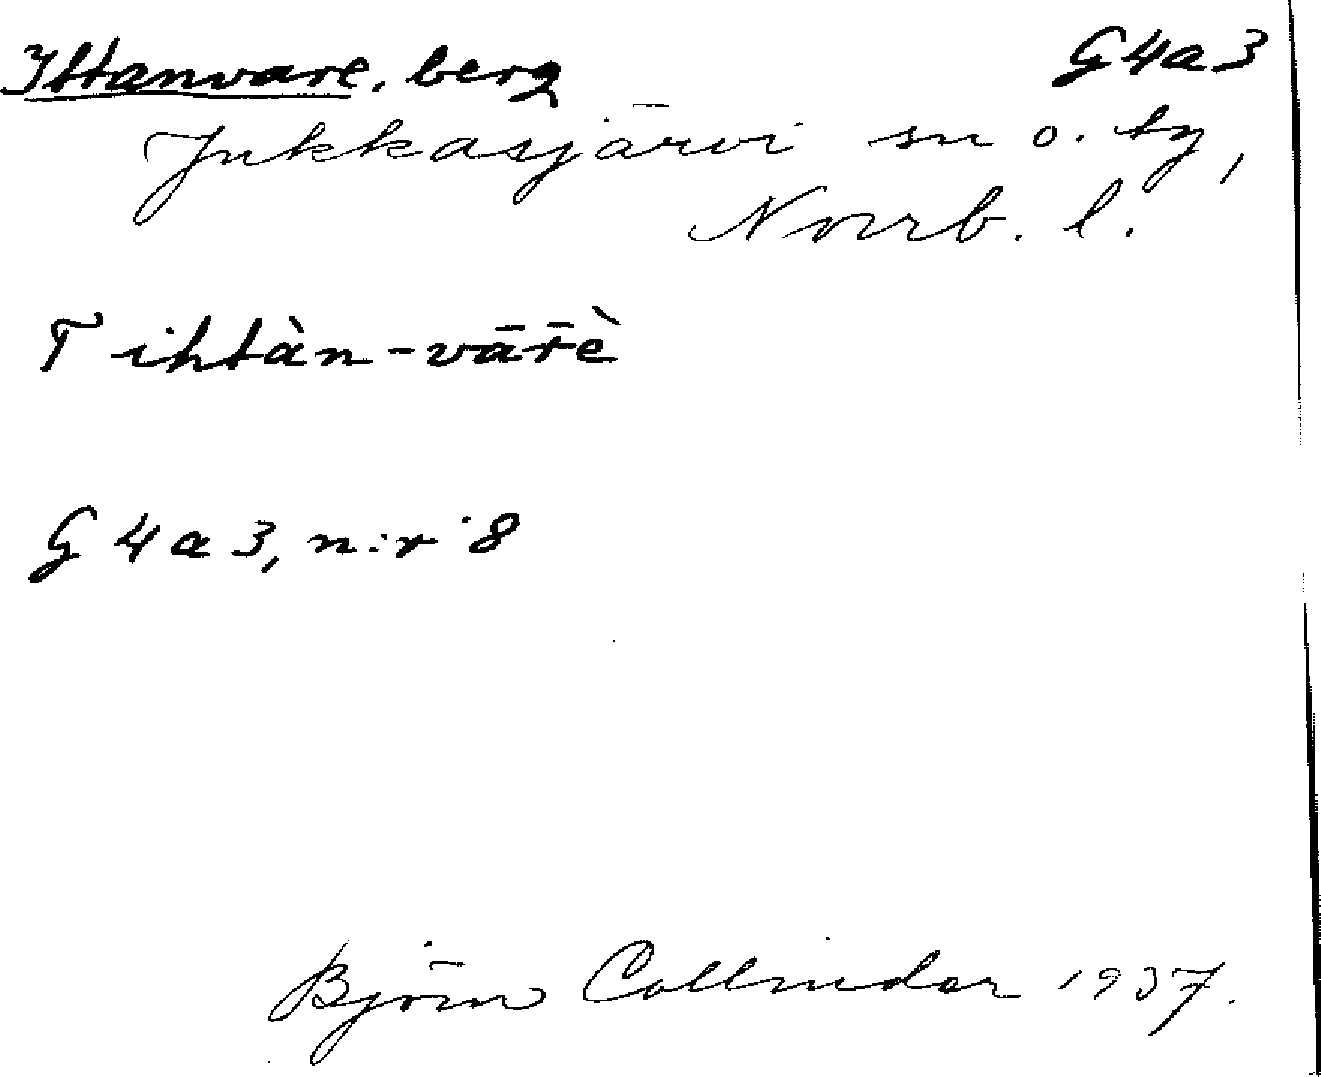 Ittanvare. berg G4a3
Jukkasjärvi sn o. ty,
Norrb. l.
T ihtàn-vār̄è
G4a3, n:r 8
Björn Collinder 1937.